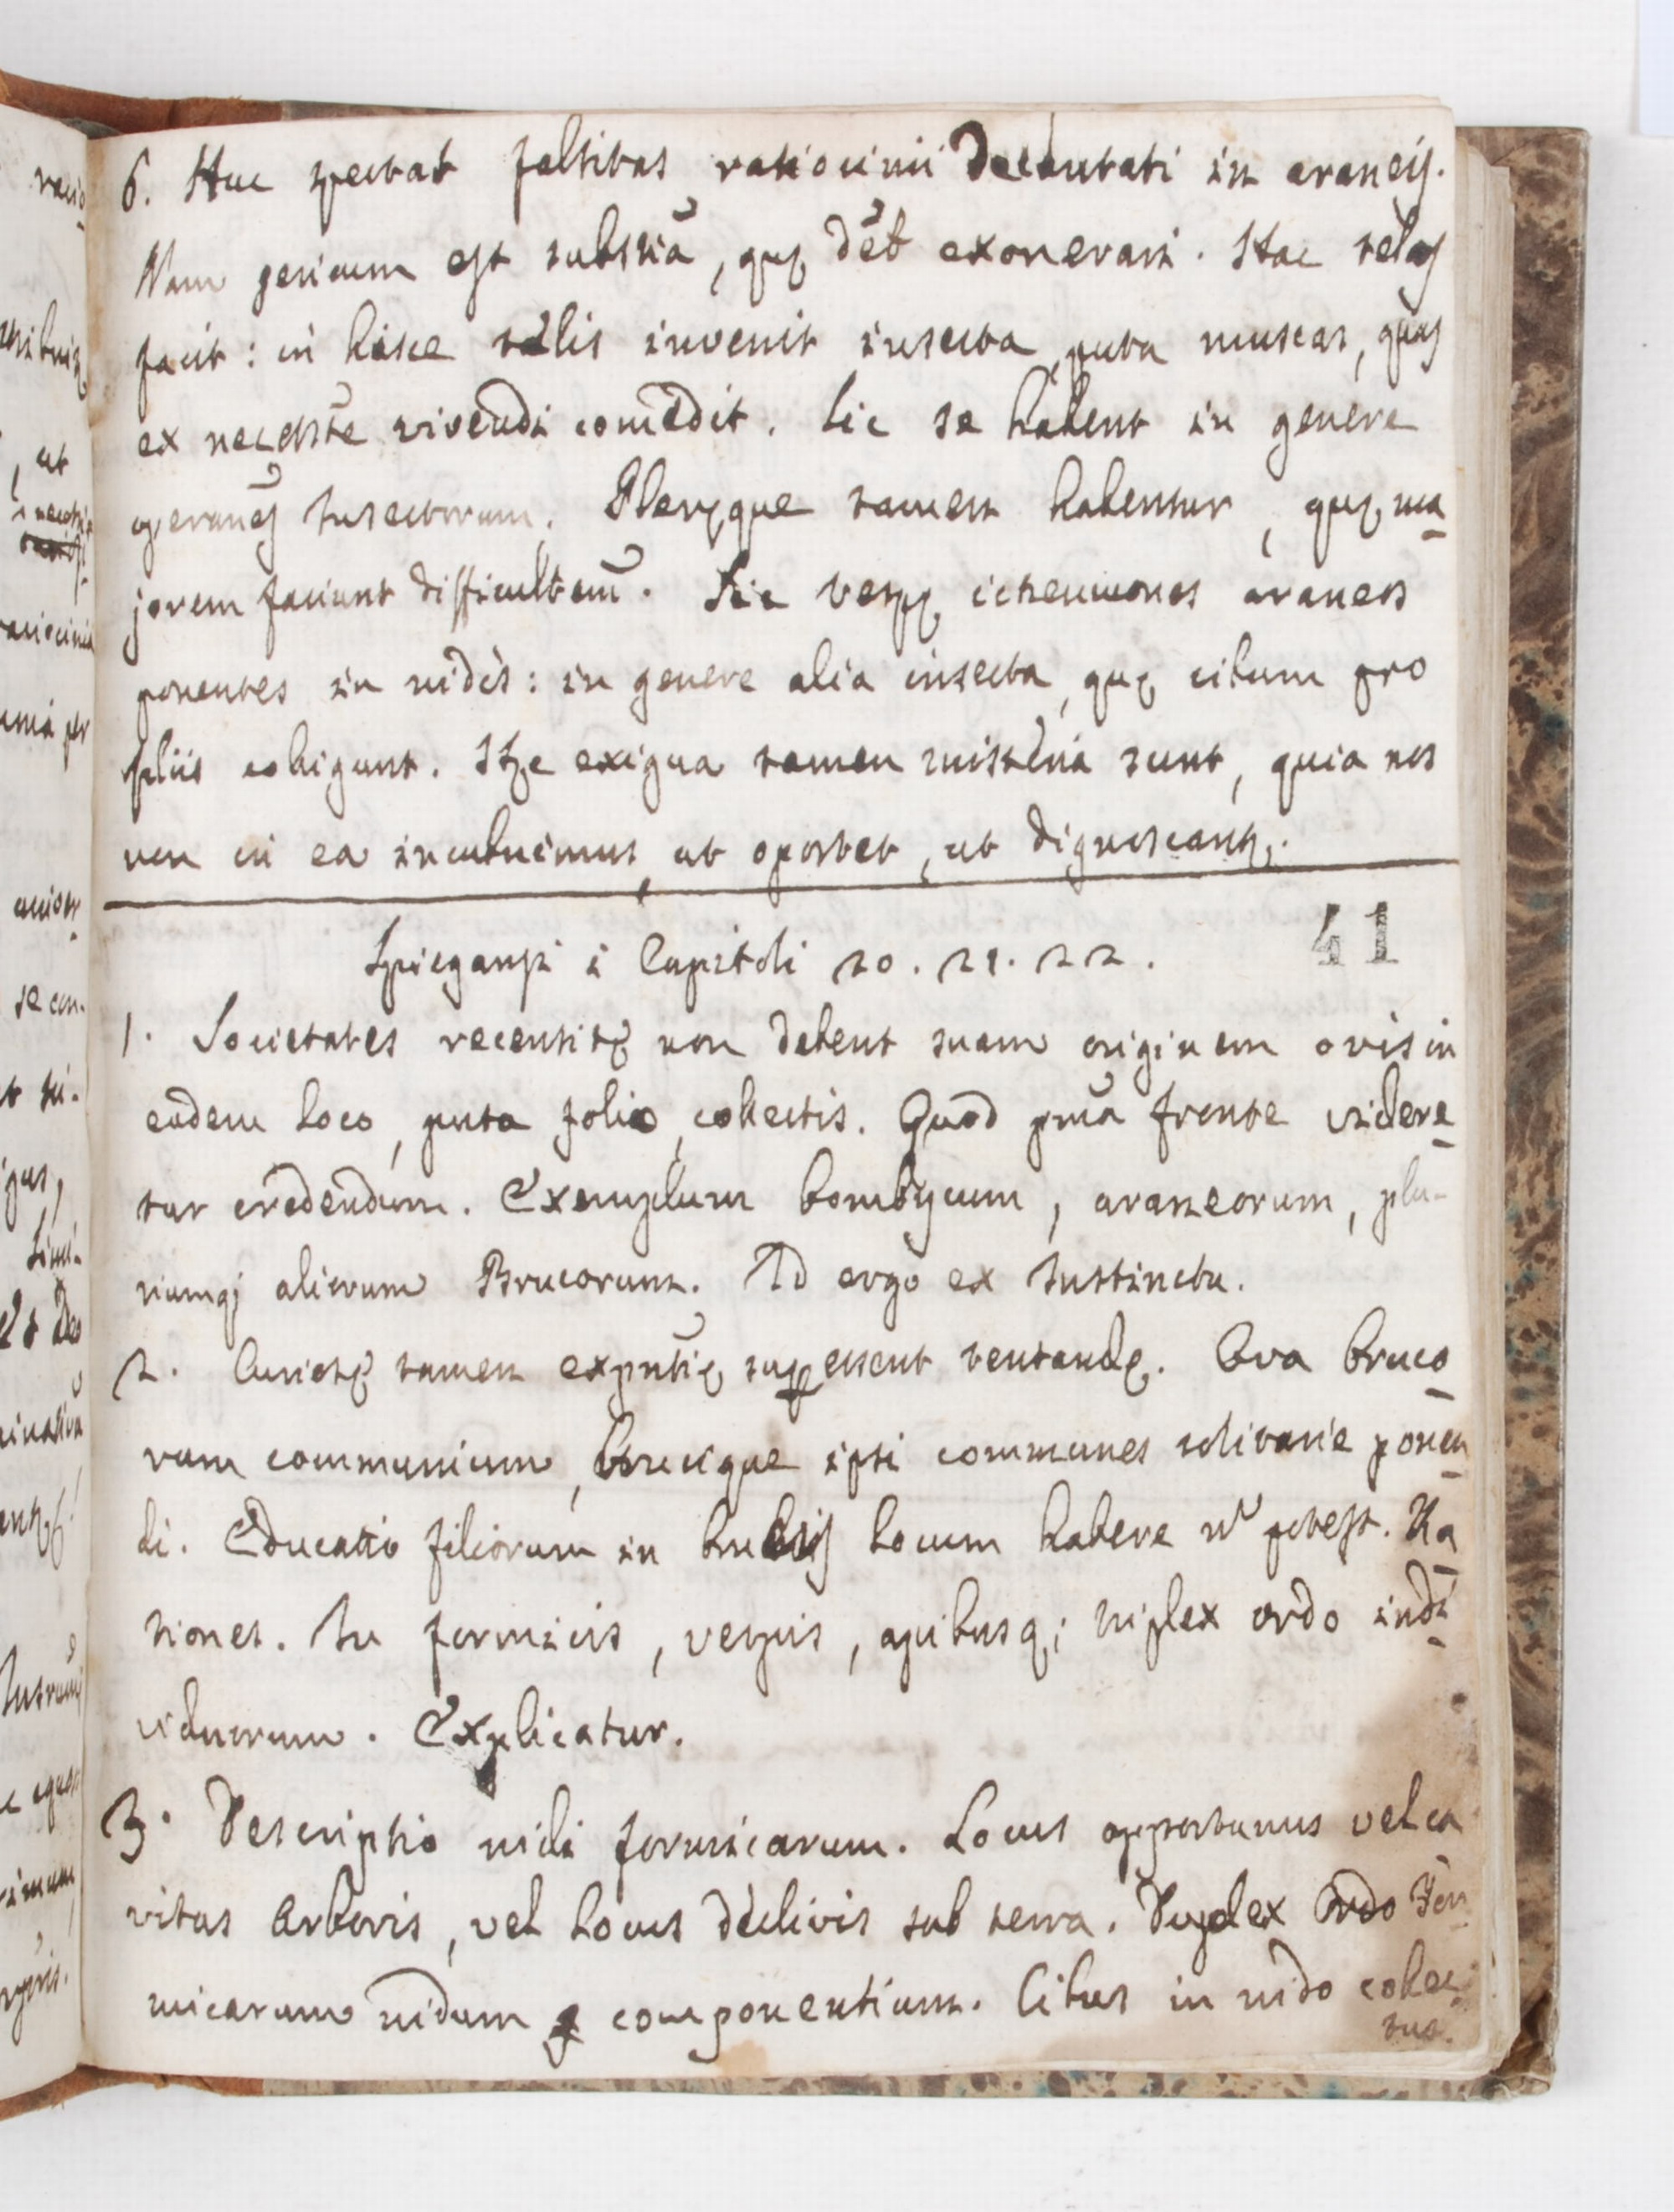 6. Huc spectat falsitas ratiocinii decantati in araneis.
Nam sericum est substiã, quę dẽt exonerari. Hac telas
facit: in hisce telis invenit insecta, puta muscas, quas
ex necessitẽ vivendi comedit. Sic se habent in genere
operanẽs Insectorum. Pleręque tamen habentur, quę ma
jorem faciunt difficultem̃. Sic vespę ichneumones araneos
ponentes in nidis: in genere alia insecta, quę cibum pro
filiis colligunt. Hęc exigua tamen mistẽria sunt, quia nos
non in ea incubuimus, ut oportet, ut dignoscantr.
Spiegansi i Capitoli 20. 21. 22.
41
1. Societates recensitę non debent suam originem ovis in
eodem loco, puta folio, collectis. Quod primã fronte videre
tur credendum. Exemplum bombycum, araneorum, plu-
riumq; aliorum Brucorum. Id ergo ex Instinctu.
2. Curiosę tamen exprntię superessent tentandę. Ova bruco
rum communium, brucique ipsi communes solitarie ponen
di. Educatio filiorum in brucis locum habere nõ potest. Ra
tiones. In formicis, vespis, apibusq; triplex ordo indi
viduorum. Explicatur.
3. Descriptio nidi formicarum. Locus opportunus vel ca
vitas arboris, vel locus declivis sub terra. Duplex ordo For
micarum nidum componentium. Cibus in nido collec
tus.